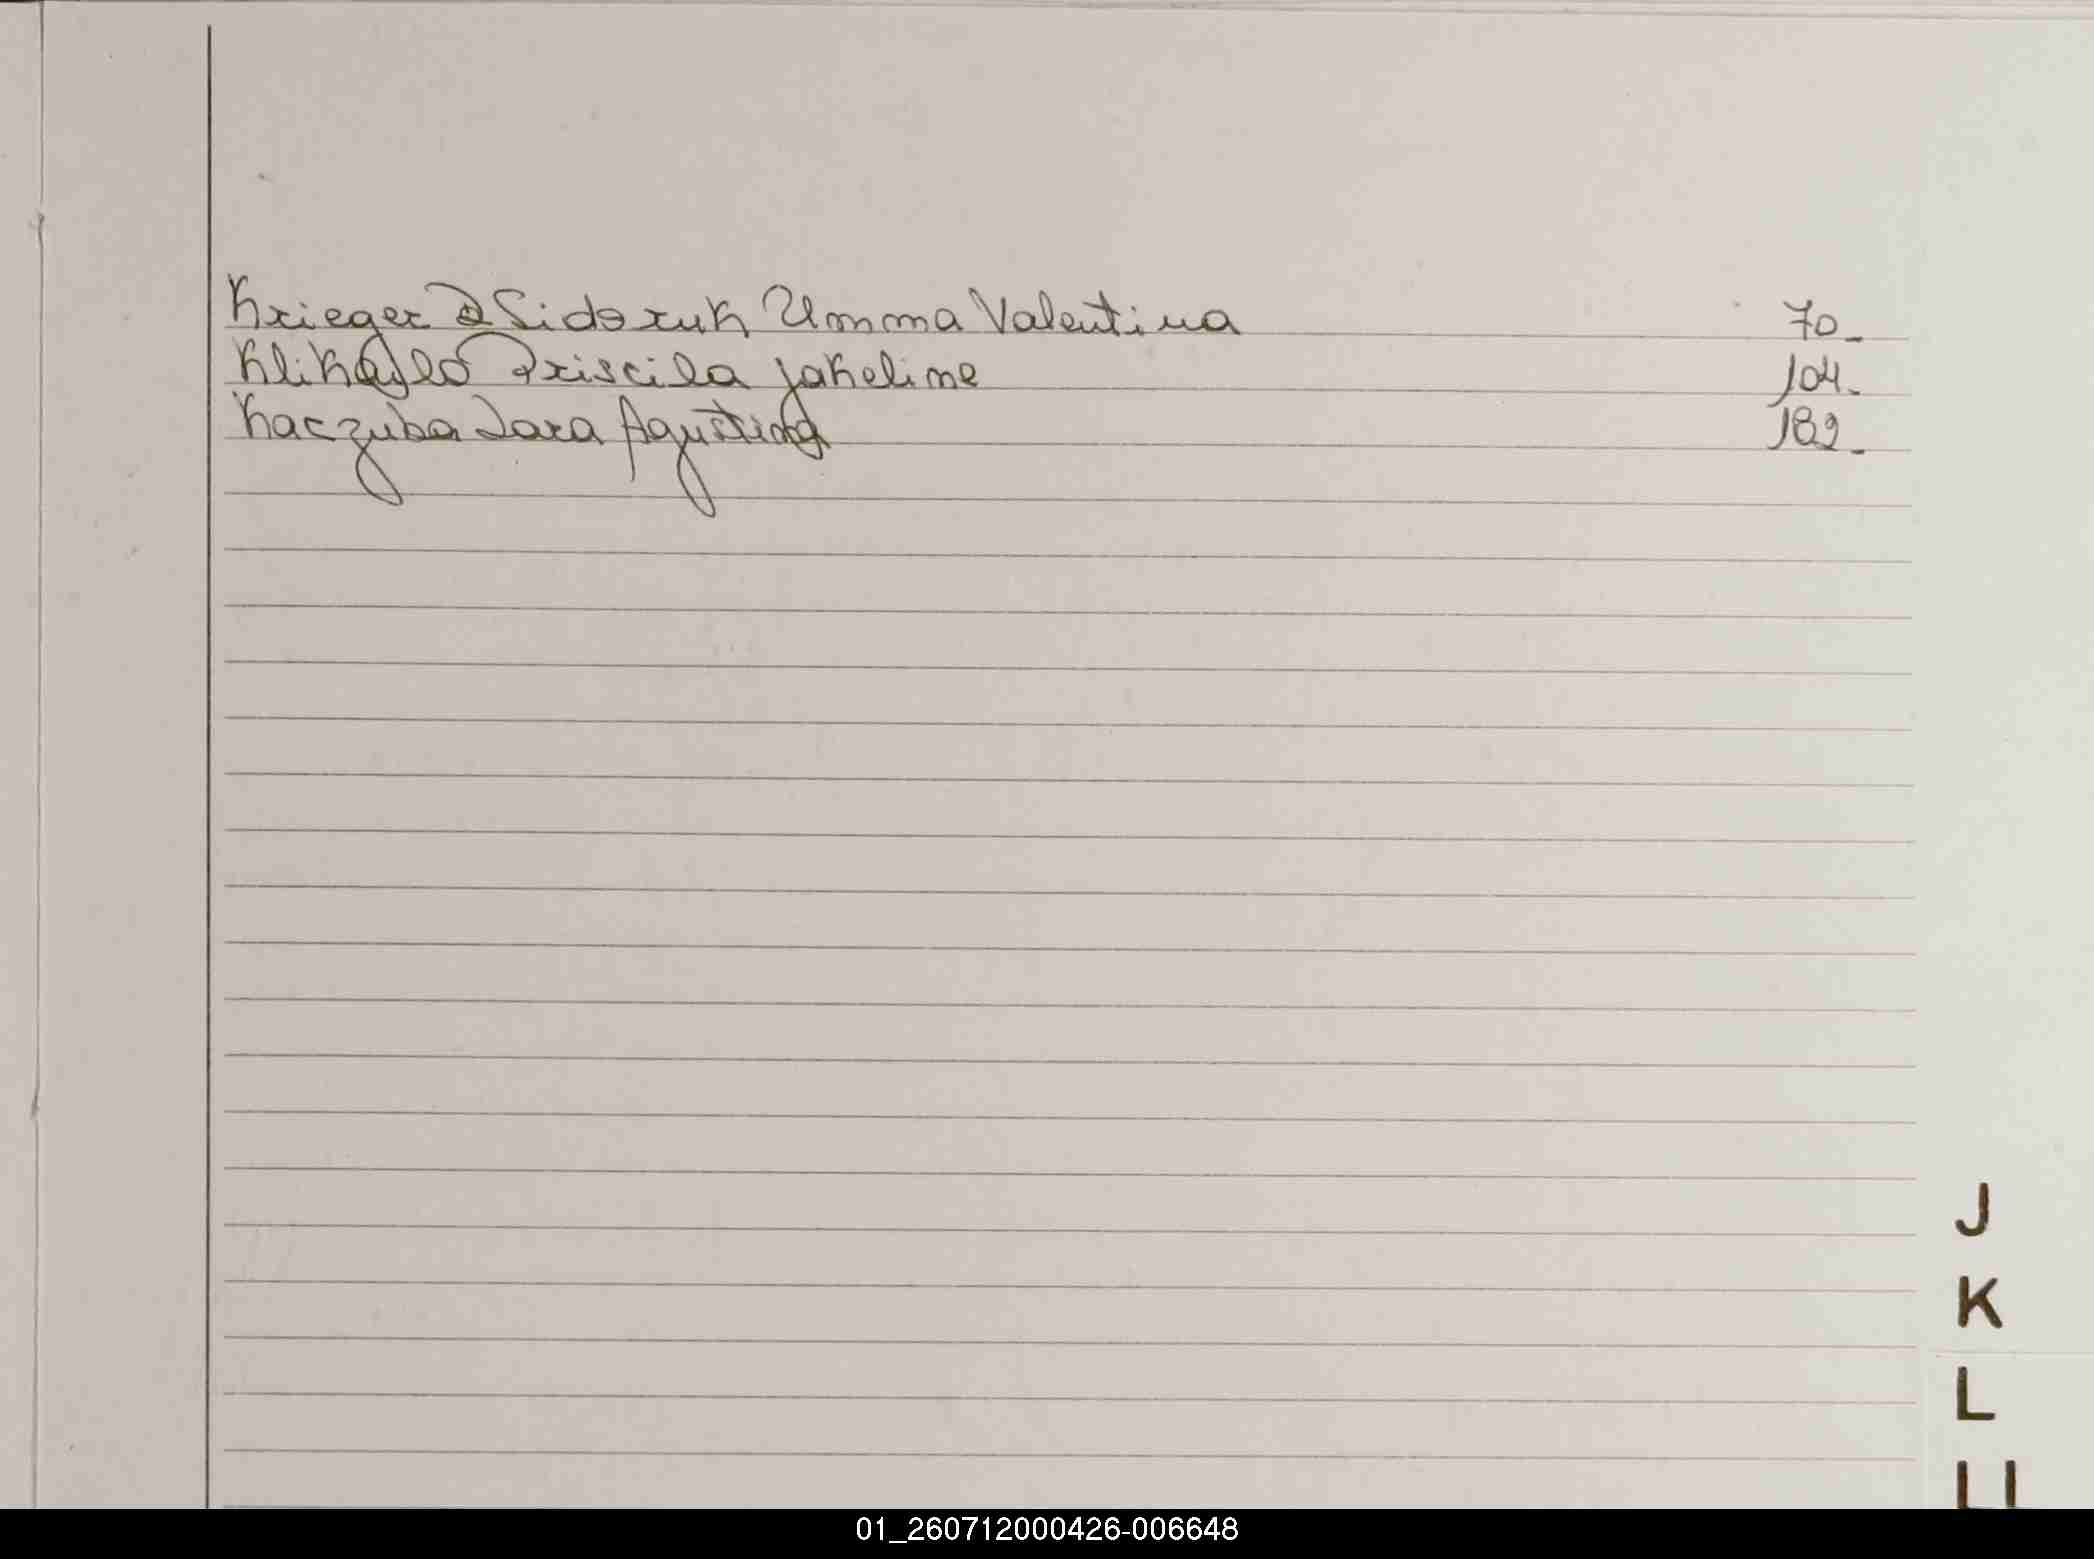 Krieger Sidoruk Umma Valentina 70_
Klikaylo Priscila jakeline 104_
Kaczuba Zara Agustina 182_
J
K
L
LL
01_260712000426-006648